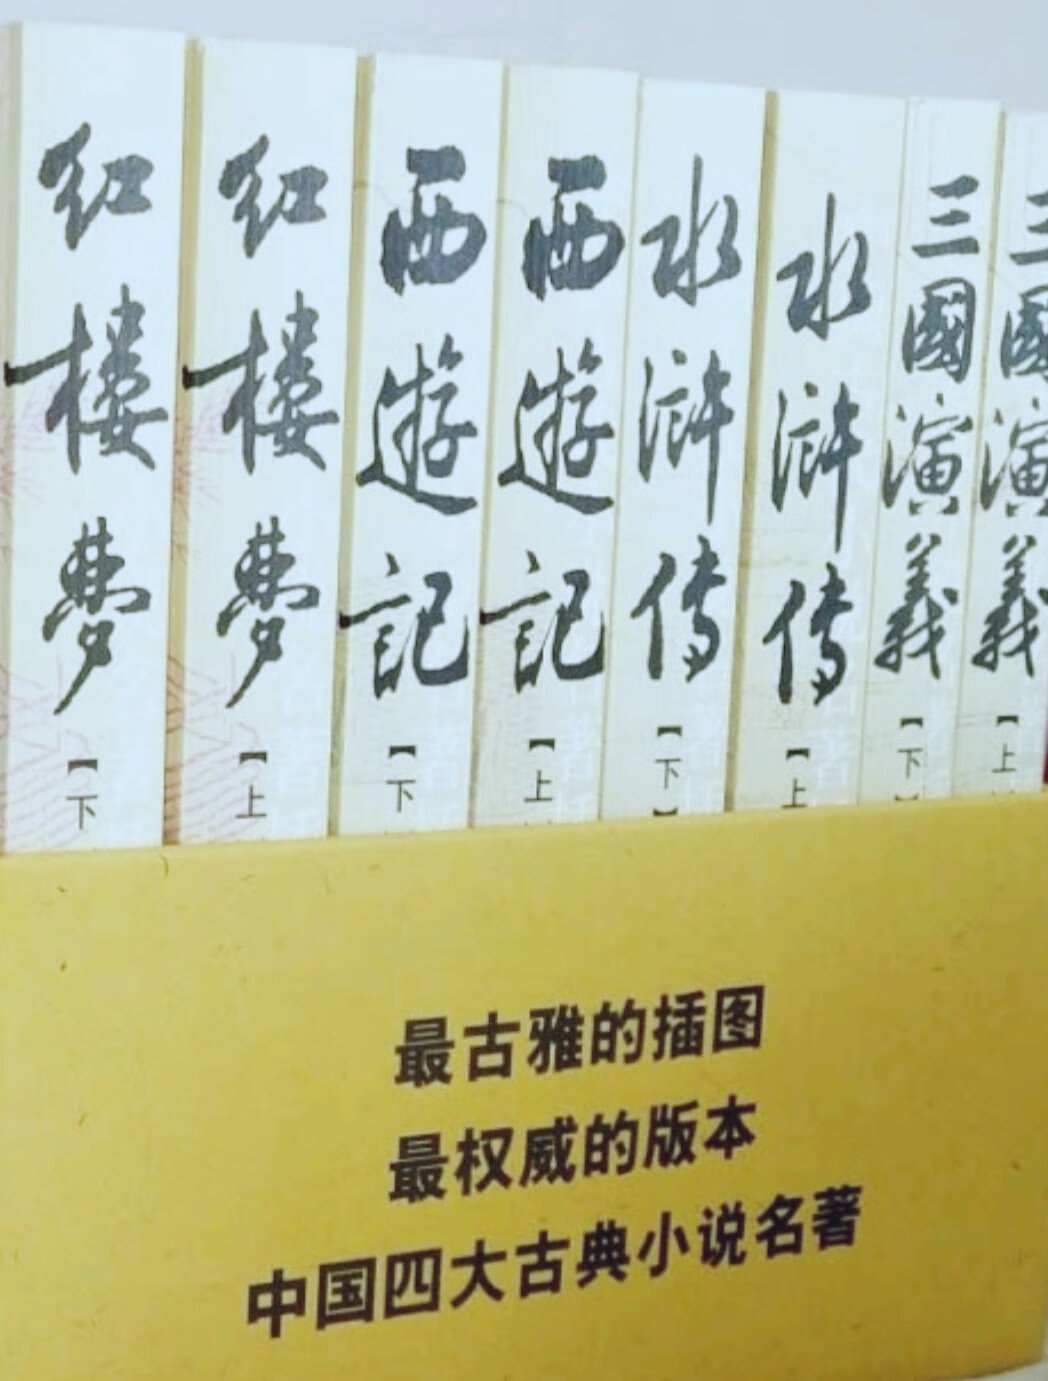 红楼梦【下
红楼梦【上
西遊記【下
西遊記【上
水浒传【下】
水浒传【上
三國演義【下】
三國演義【上
最古雅的插图
最权威的版本
中国四大古典小说名著